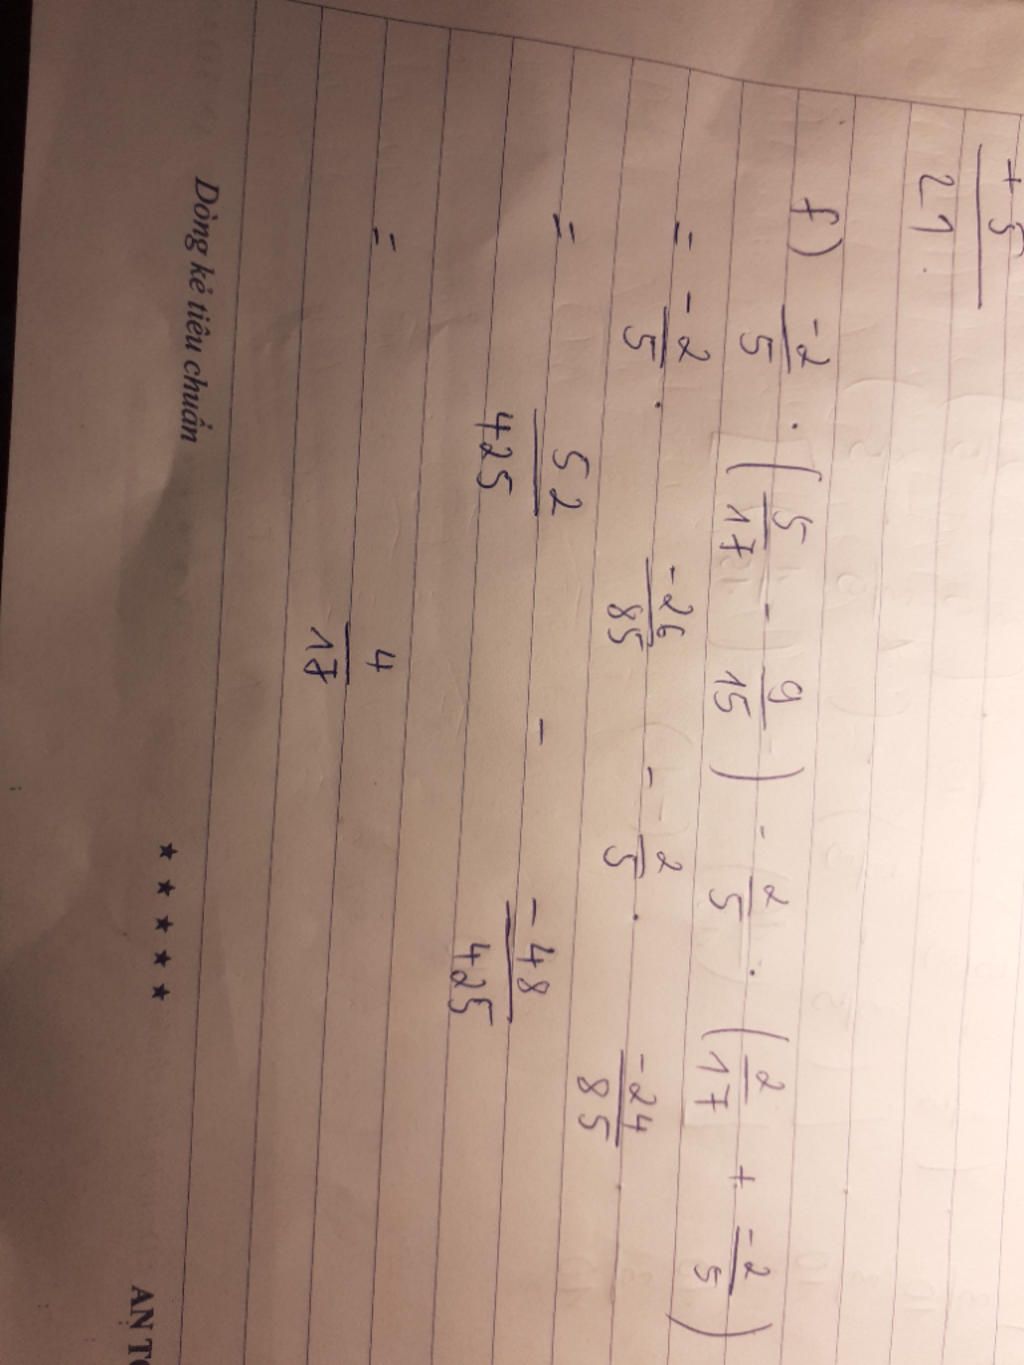 + 5
21.
f) -2/5 . (5/17 - 9/15) - 2/5 . (2/17 + -2/5)
= -2/5 . -26/85 - 2/5 . -24/85
= 52/425 - -48/425
= 4/17
Dòng kẻ tiêu chuẩn ★★★★★ AN TO